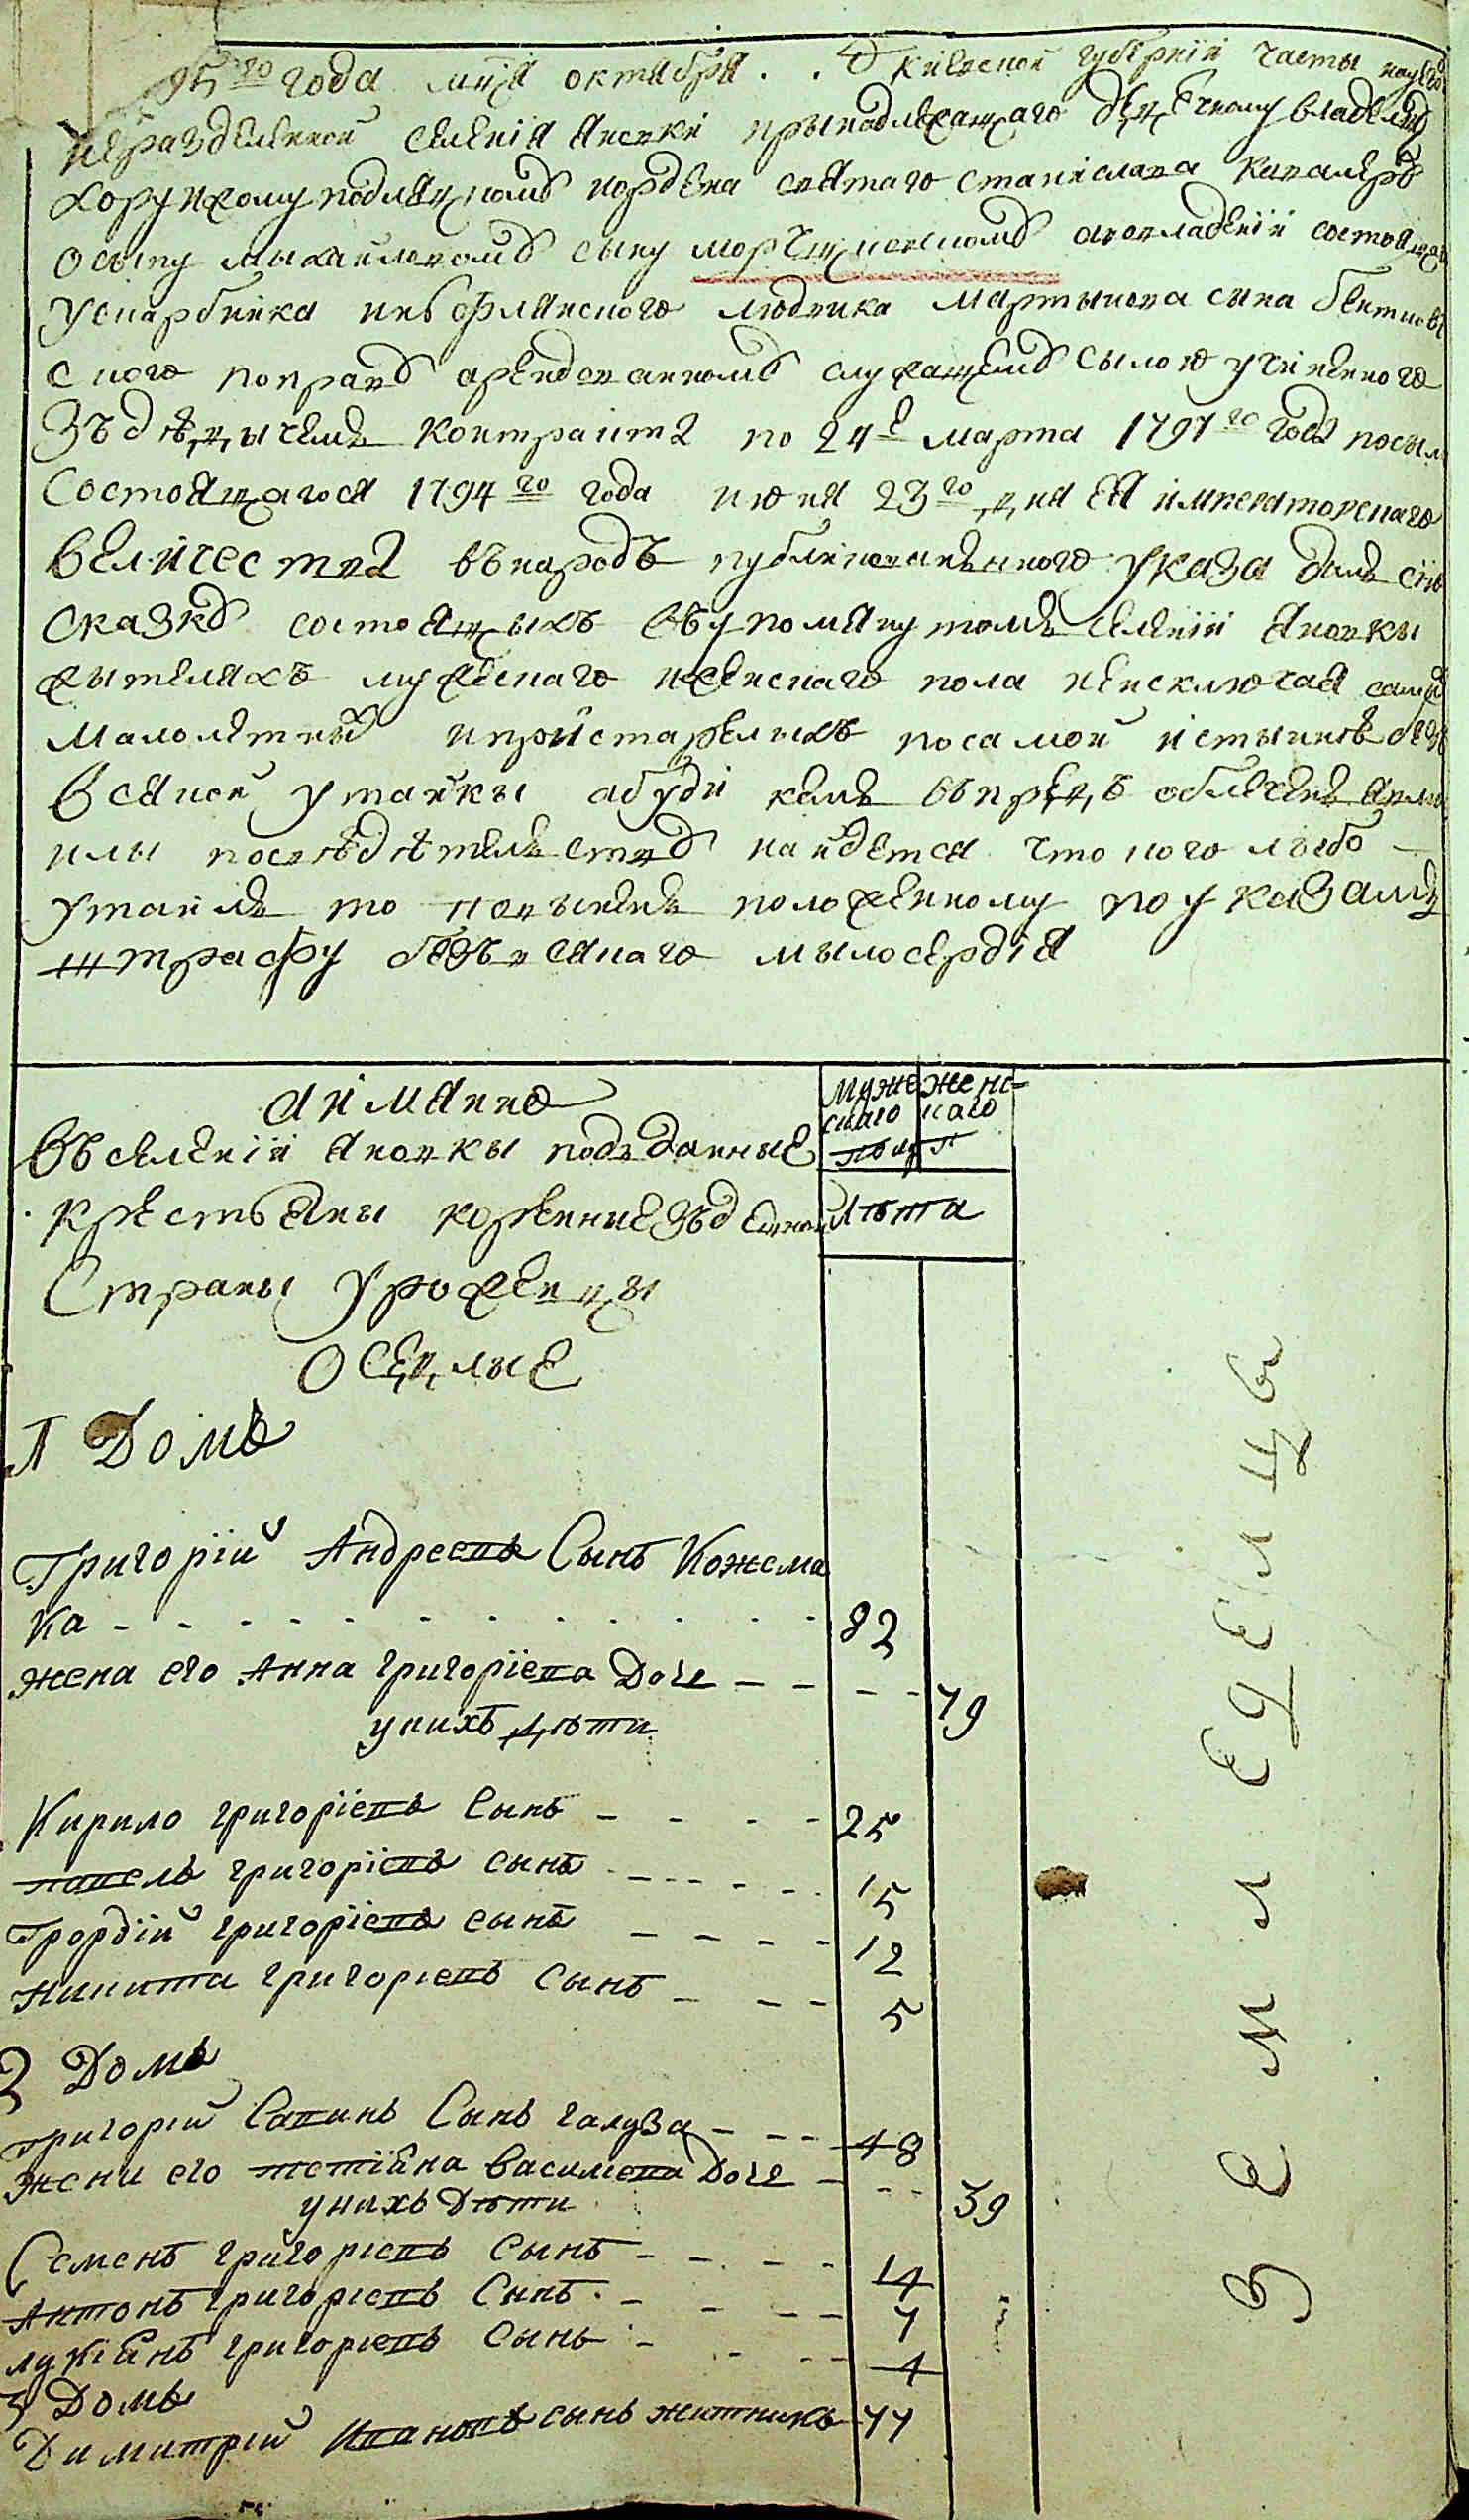 95го года мца октября . . Киевской губернїи части
нераздѣленной селенїя Яновки принадлежащаго дѣдѣчному владелцу
хорунжому подляцкомъ иордена святаго станислава кавалеръ
осыпу михайловомъ сыну морчинскомъ авовладенїи
ускарбника инфорлянского людвика мартынова сына
ского поправъ арендованномъ служащемъ сылою учиненного
зъ дѣдычемъ контракта по 24е марта 1797го года
состоящагося 1794го года июня 23го дня ея императорскаго
величества въ народъ публикованънного указа далъ сїю
сказкъ состоящыхъ въ упомянутомъ селенїи Яновки
жытеляхъ мужескаго иженскаго пола неисключая самы
малолѣтный ипрїистарелыхъ посамой истыннѣ безъ
всякой утайкы абуди кемъ въпредъ обличенъ
илы посвѣдѣтелъствъ найдется что кого лыбо
утаилъ то повыненъ положенному по указамъ
штрафу безъвсякаго мылосердїя
аимянно
въ селенїи Яновкы подъданные
крестьяны коренние зъдешной
Страны уроженцы
Оседлые
Муже женс-
скаго каго
полу п
лѣта
1 Домъ
Григорїй Андреевъ Сынъ Кожема
ка - - - - - - - - - - 82
жена его Анна григорїева Доче - - - - 79
унихъ дѣти
Кирило григорїевъ Сынъ - - - - 25
павелъ григорїевъ сынъ - - - - - 15
Грордїй григорїевъ сынъ - - - - 12
Никита григорїевъ Сынъ - - - 5
2 Домъ
Григорїй Савинъ Сынъ галуза - - - 48
жени его тетїяна василева Доче - - - 39
унихъ Дѣти
Семенъ григорїевъ сынъ - - - - 14
Антонъ григорїевъ Сынъ - - - - 7
лукїянъ григорїевъ Сынъ - - - - 4
3 Домъ
Димитрїй Ивановъ сынъ житникъ 77
земл едѣлцы